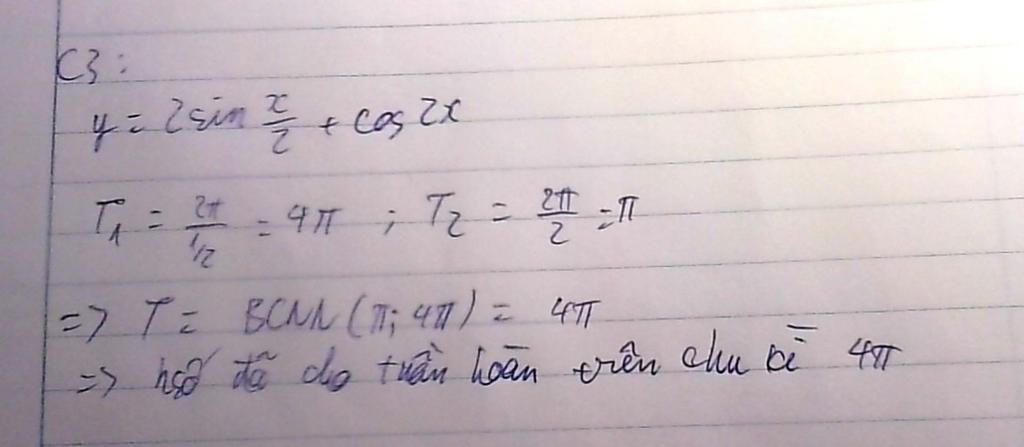 C3:
y = 2sin x/2 + cos 2x
T₁ = 2π/(1/2) = 4π ; T₂ = 2π/2 = π
=> T = BCNN (π; 4π) = 4π
=> hsố đã cho tuần hoàn trên chu kì 4π